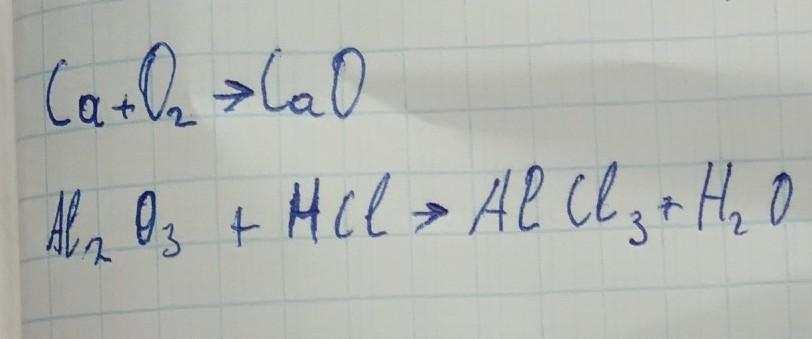 Ca+O₂→CaO
Al₂O₃ + HCl → AlCl₃+H₂O